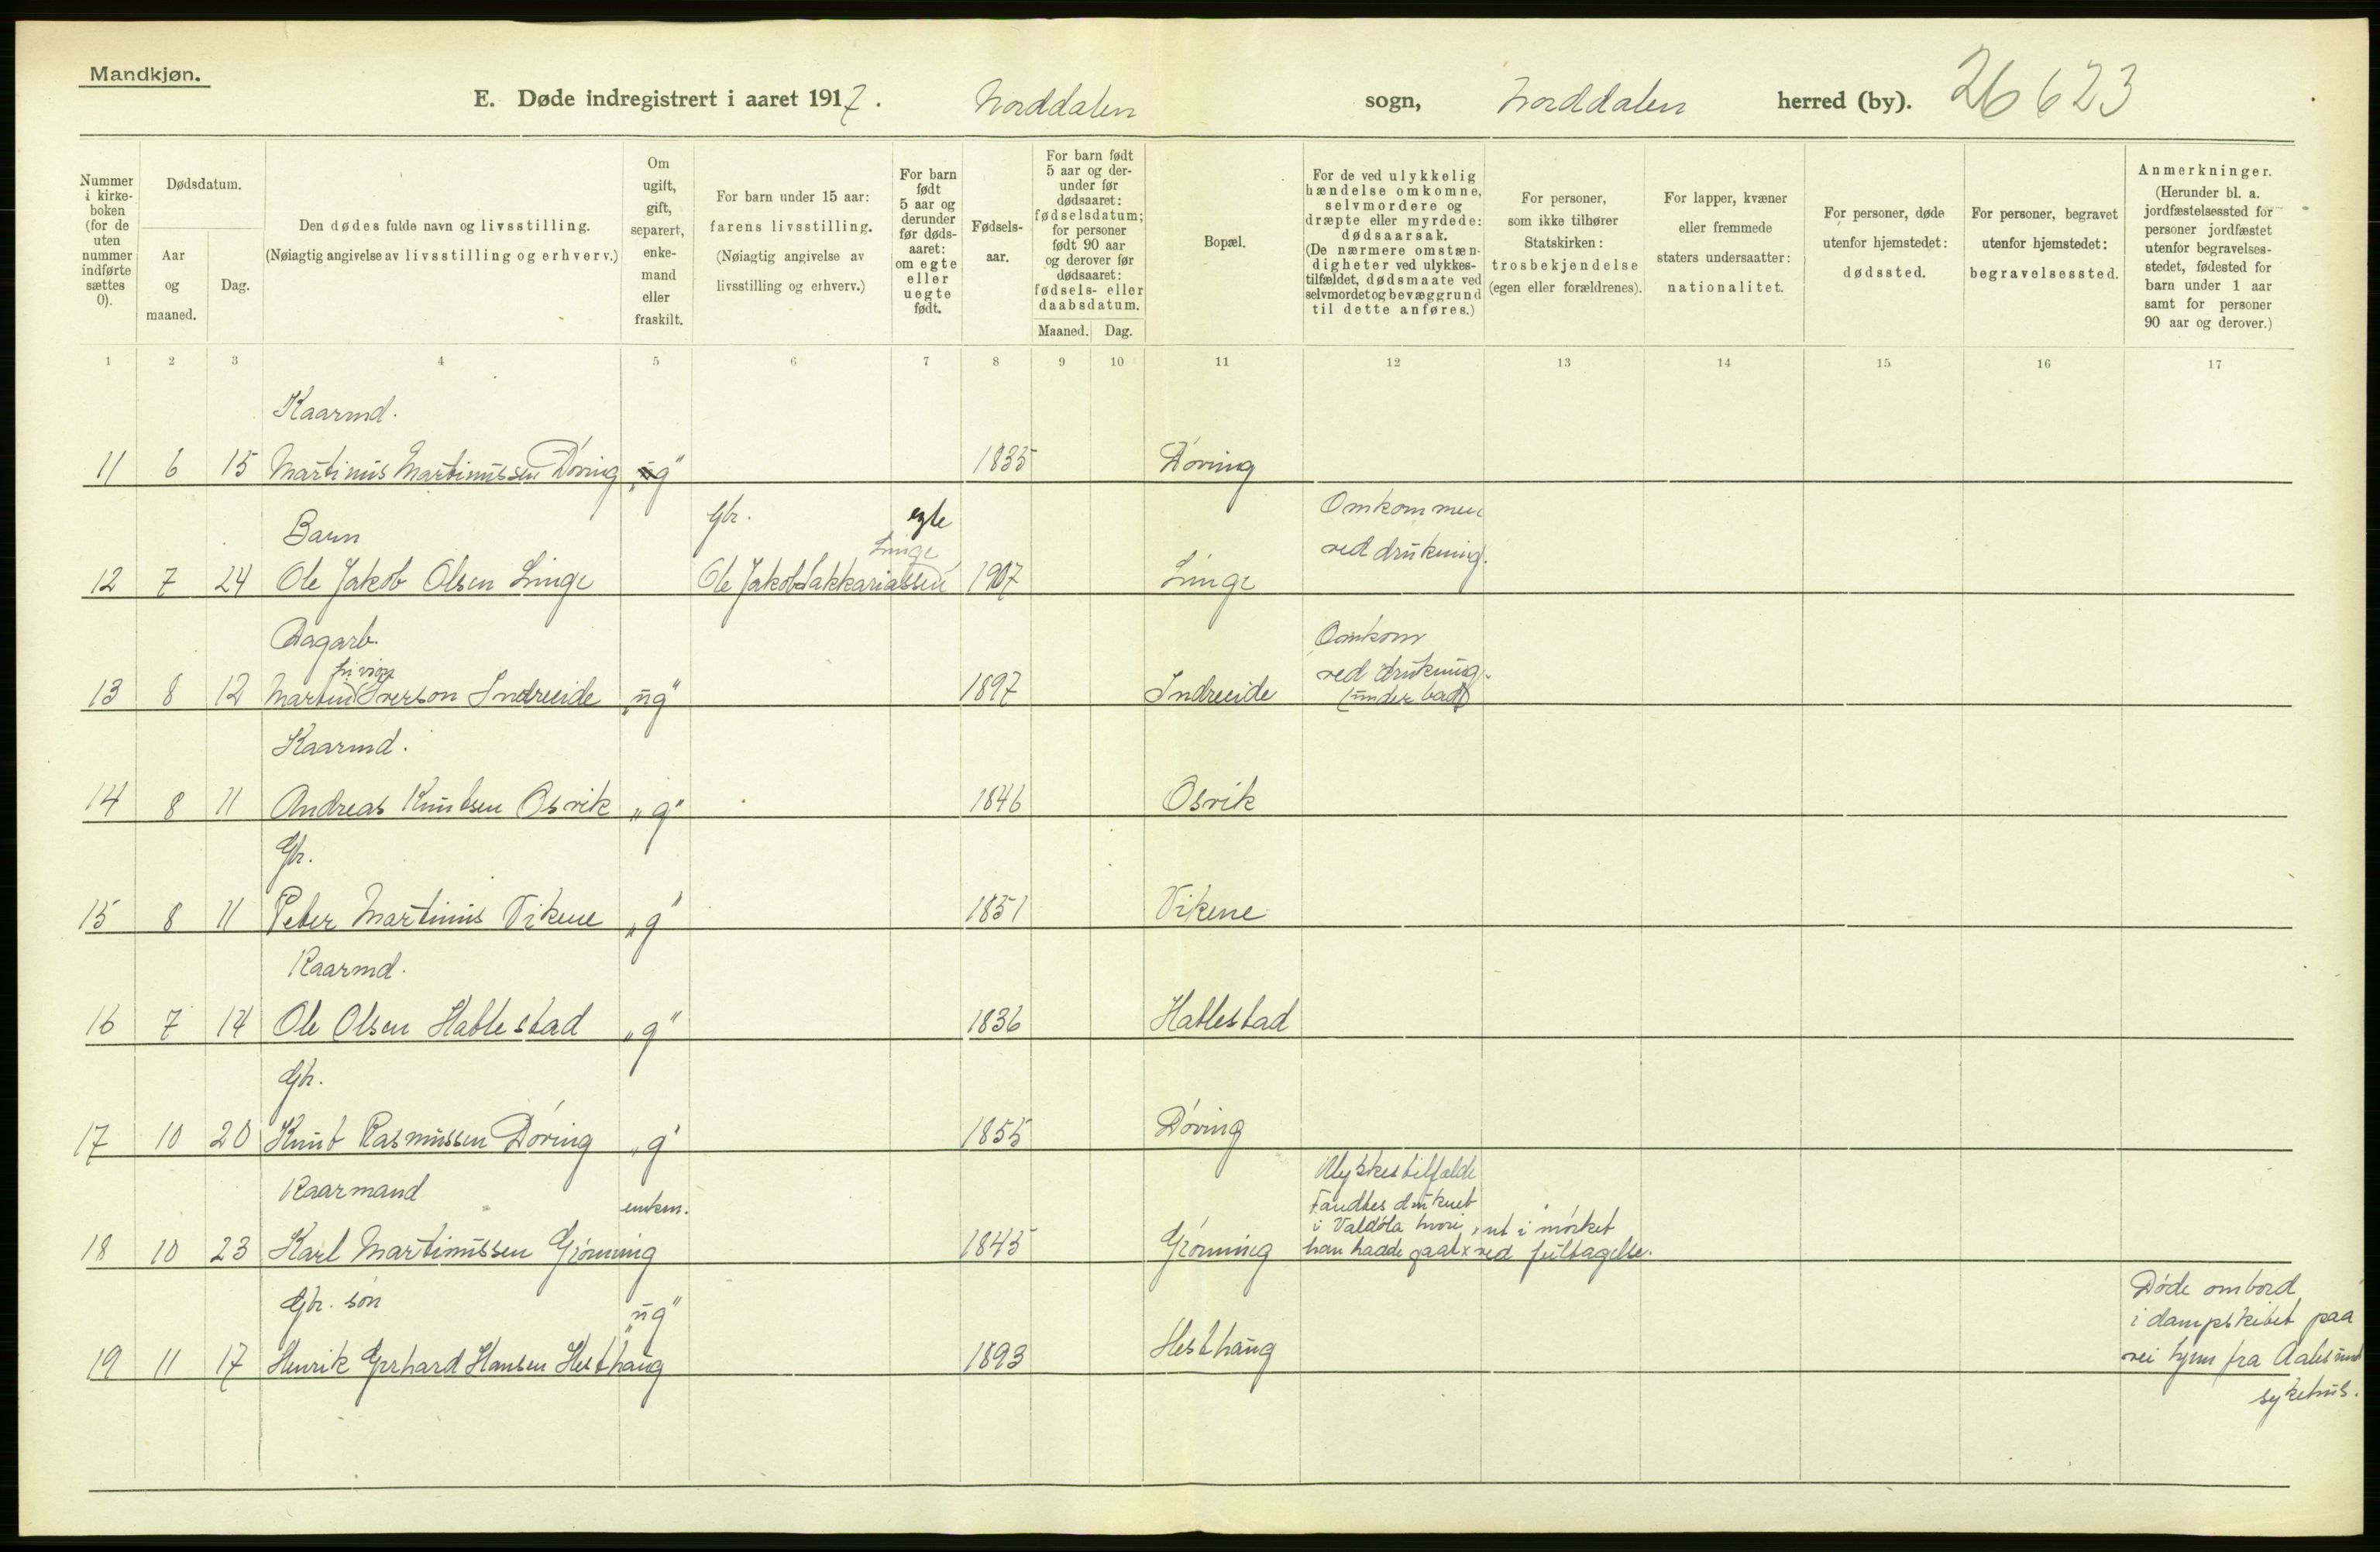 Mandkjøn.
E. Døde indregistrert i aaret 1917. Norddalen sogn, Norddalen herred (by). 26 623
Nummer i kirke-boken (for de uten nummer indførte sættes 0).
Dødsdatum.
Aar og maaned.
Dag.
Den dødes fulde navn og livsstilling.
(Nøiagtig angivelse av livsstilling og erhverv.)
Om ugift, gift, separert, enke-mand eller fraskilt.
For barn under 15 aar:
farens livsstilling.
(Nøiagtig angivelse av livsstilling og erhverv.)
For barn født 5 aar og derunder før døds-aaret: om egte eller uegte født.
Fødsels-aar.
For barn født 5 aar og der-under før dødsaaret: fødselsdatum; for personer født 90 aar og derover før dødsaaret: fødsels- eller daabsdatum.
Maaned. Dag.
Bopæl.
For de ved ulykkelig hændelse omkomne, selvmordere og dræpte eller myrdede: dødsaarsak.
(De nærmere omstæn-digheter ved ulykkes-tilfældet, dødsmaate ved selvmordet og bevæggrund til dette anføres.)
For personer, som ikke tilhører Statskirken: trosbekjendelse (egen eller forældrenes).
For lapper, kvæner eller fremmede staters undersaatter: nationalitet.
For personer, døde utenfor hjemstedet: dødssted.
For personer, begravet utenfor hjemstedet: begravelsessted.
Anmerkninger.
(Herunder bl. a. jordfæstelsessted for personer jordfæstet utenfor begravelses-stedet, fødested for barn under 1 aar samt for personer 90 aar og derover.)
1 2 3 4 5 6 7 8 9 10 11 12 13 14 15 16 17
Kaarmd.
11 6 15 Martinus Martinussen Døving „g" 1835 Døving
Barn Gbr. egte Omkommen
Linge ved drukning.
12 7 24 Ole Jakob Olsen Linge Ole Jakob Sakkariassen 1907 Linge
Dagarb. Omkom
ved drukning.
13 8 12 Martin Iverson Indreeide „ug" 1897 Indreeide (under bad)
Kaarmd.
14 8 11 Andreas Knutsen Osvik „g" 1846 Osvik
Gbr.
15 8 11 Peter Martinus Vikene „g" 1851 Vikene
Kaarmd.
16 7 14 Ole Olsen Hatlestad „g" 1836 Hatlestad
Gbr.
17 10 20 Knut Rasmussen Døving „g" 1855 Døving
Kaarmand enkem. Ulykkestilfælde
Fandtes druknet
i Valdøla hvori x ut i mørket
18 10 23 Karl Martinussen Grønning 1845 Grønning han hadde gaat x ved
Gbr. søn „ug" Døde ombord
i dampskibet paa
19 11 17 Henrik Gerhard Hansen Hesthaug 1893 Hesthaug vei hjem fra Aalesund
sykehus.